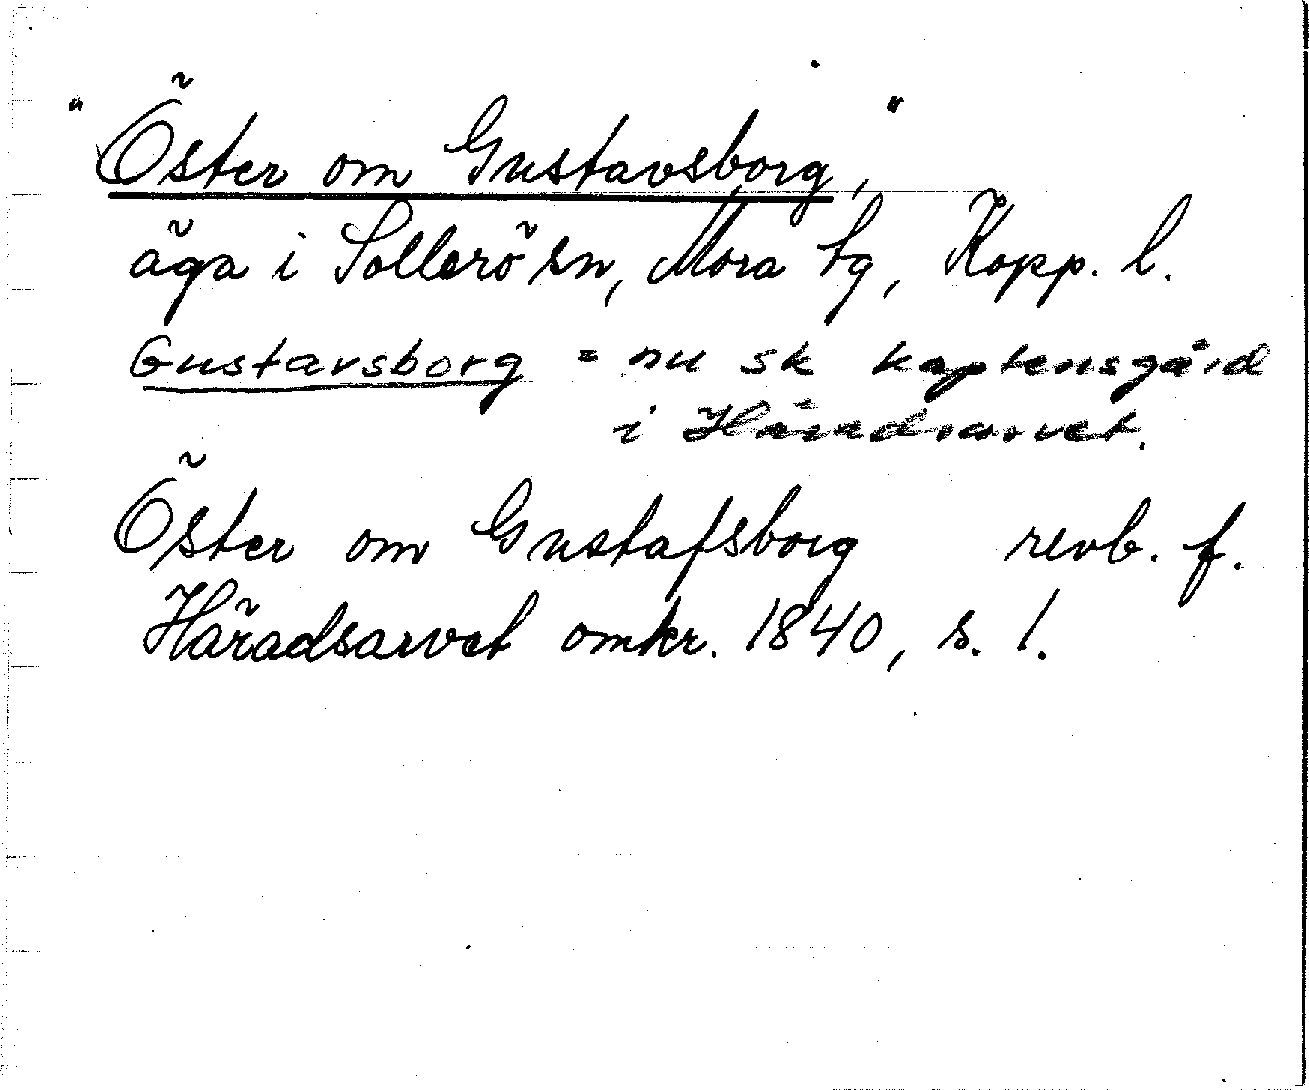 "Öster om Gustavsborg,"
äga i Sollerö sn, Mora tg, Kopp. l.
Gustavsborg = nu sk kaptensgård
i Häradsarvet.
Öster om Gustafsborg revb. f.
Häradsarvet omkr. 1840, s. 1.